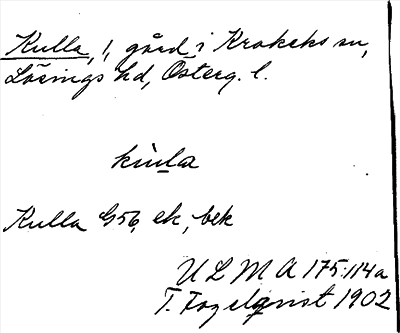 Kulla, 1, gård i Krokeks sn,
Lösings hd, Österg. l.
kùla
Kulla G56, ek, bek
U L M A 175:114a
T. Fogelqvist 1902